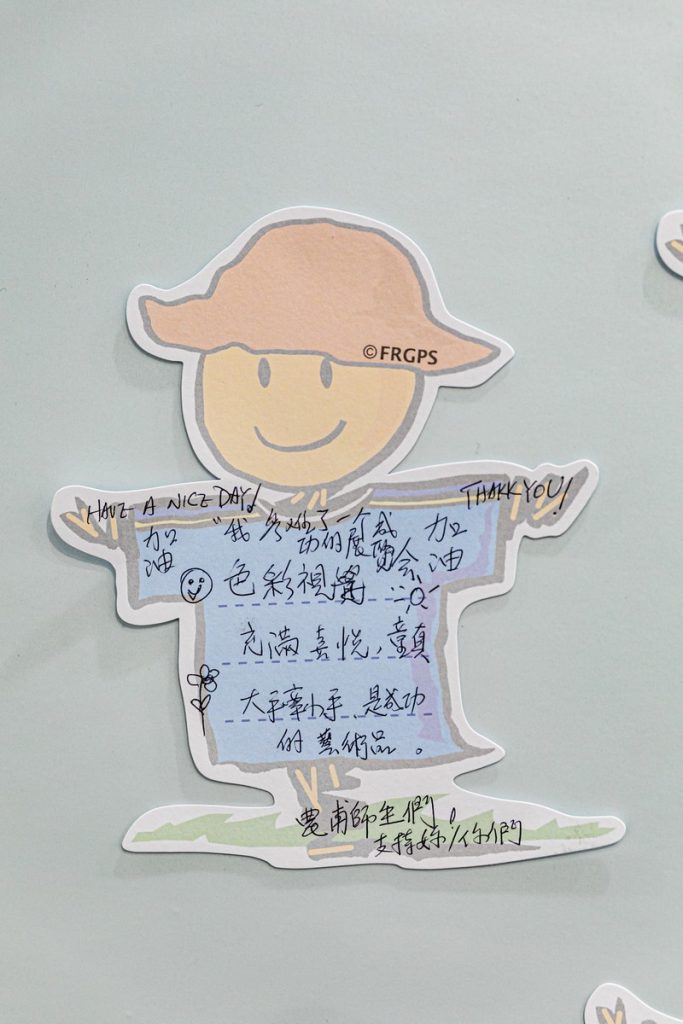 ©FRGPS
HAVE A NICE DAY!
THANK YOU!
加油
加油
"我參加了一個成
功的展覽會,
色彩視覺
充滿喜悅,童真
大手牽小手、是成功
的藝術品。
農甫師生們。
支持妳/你們